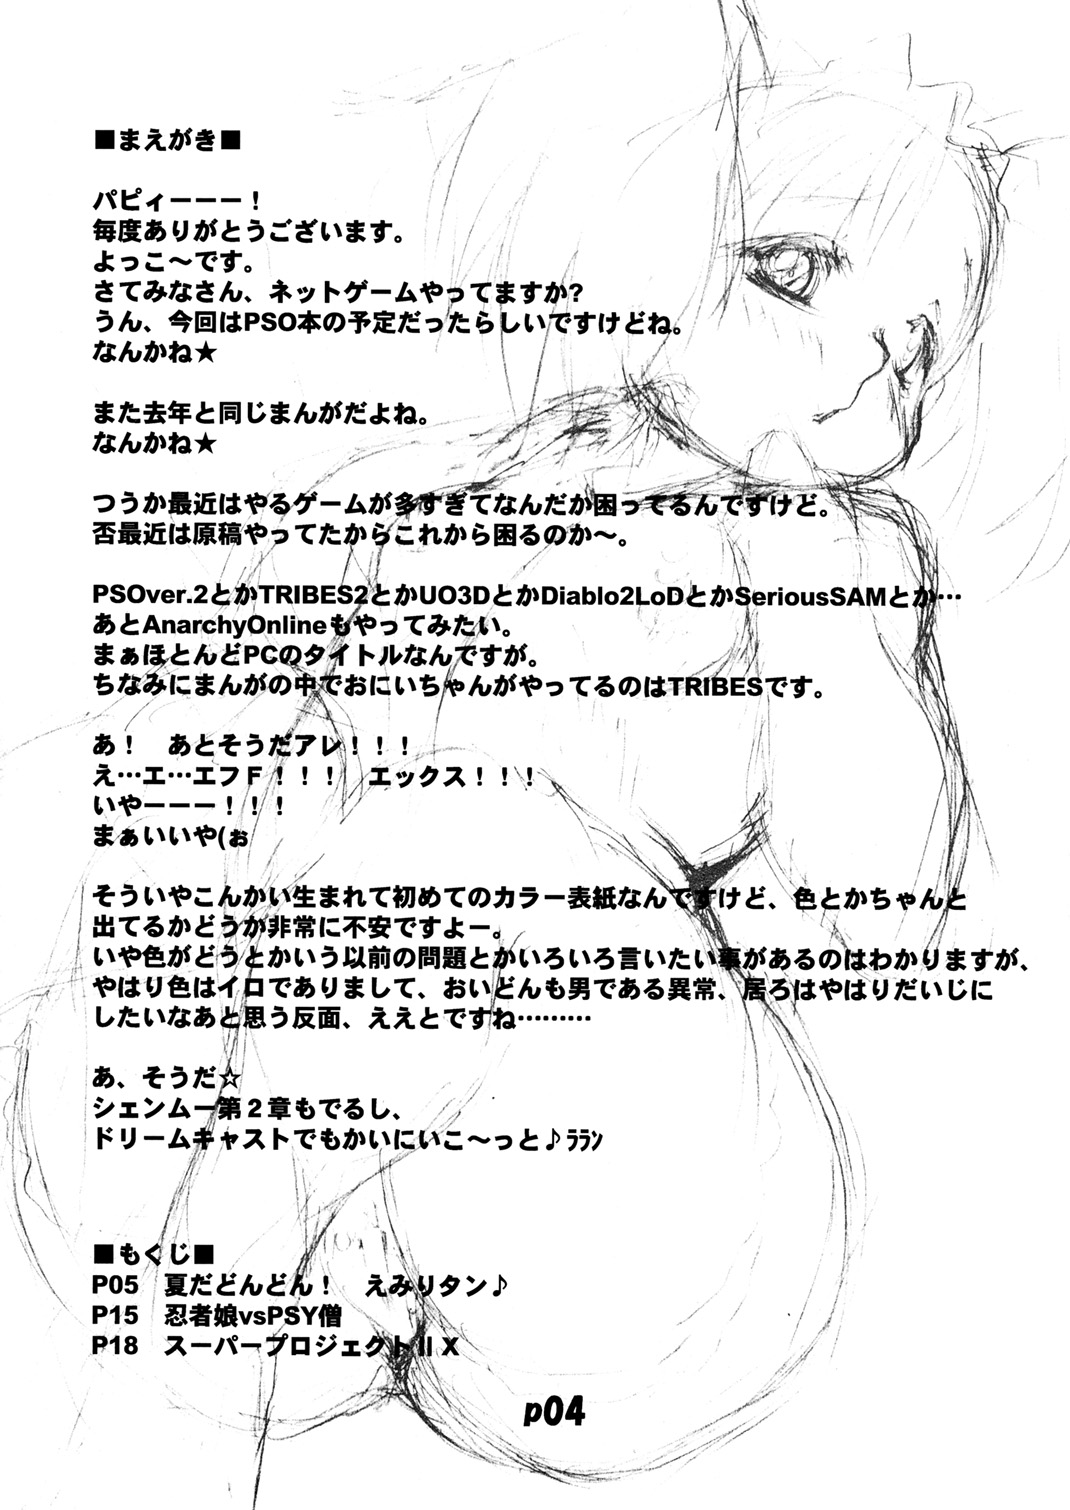 ■まえがき■
パピィーーー！
毎度ありがとうございます。
よっこ～です。
さてみなさん、ネットゲームやってますか?
うん、今回はPSO本の予定だったらしいですけどね。
なんかね★
また去年と同じまんがだよね。
なんかね★
つうか最近はやるゲームが多すぎてなんだか困ってるんですけど。
否最近は原稿やってたからこれから困るのか～。
PSOver.2とかTRIBES2とかUO3DとかDiablo2LoDとかSeriousSAMとか…
あとAnarchyOnlineもやってみたい。
まぁほとんどPCのタイトルなんですが。
ちなみにまんがの中でおにいちゃんがやってるのはTRIBESです。
あ！　あとそうだアレ！！！
え…エ…エフＦ！！！　エックス！！！
いやーーー！！！
まぁいいや(ぉ
そういやこんかい生まれて初めてのカラー表紙なんですけど、色とかちゃんと
出てるかどうか非常に不安ですよー。
いや色がどうとかいう以前の問題とかいろいろ言いたい事があるのはわかりますが、
やはり色はイロでありまして、おいどんも男である異常、居ろはやはりだいじに
したいなあと思う反面、ええとですね………
あ、そうだ☆
シェンムー第２章もでるし、
ドリームキャストでもかいにいこ～っと♪ﾗﾗﾝ
■もくじ■
P05　夏だどんどん！　えみりタン♪
P15　忍者娘vsPSY僧
P18　スーパープロジェクトⅡX
p04